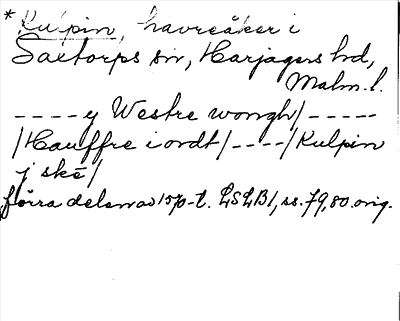 * Kulpin, havreåker i
Saxtorps sn, Harjagers hd,
Malm. l.
----y Westre wongh/-----
/Hauffre i ordt/----/Kulpin
j skē/
förra delen av 1570-t. LSLB1, ss. 79, 80. orig.